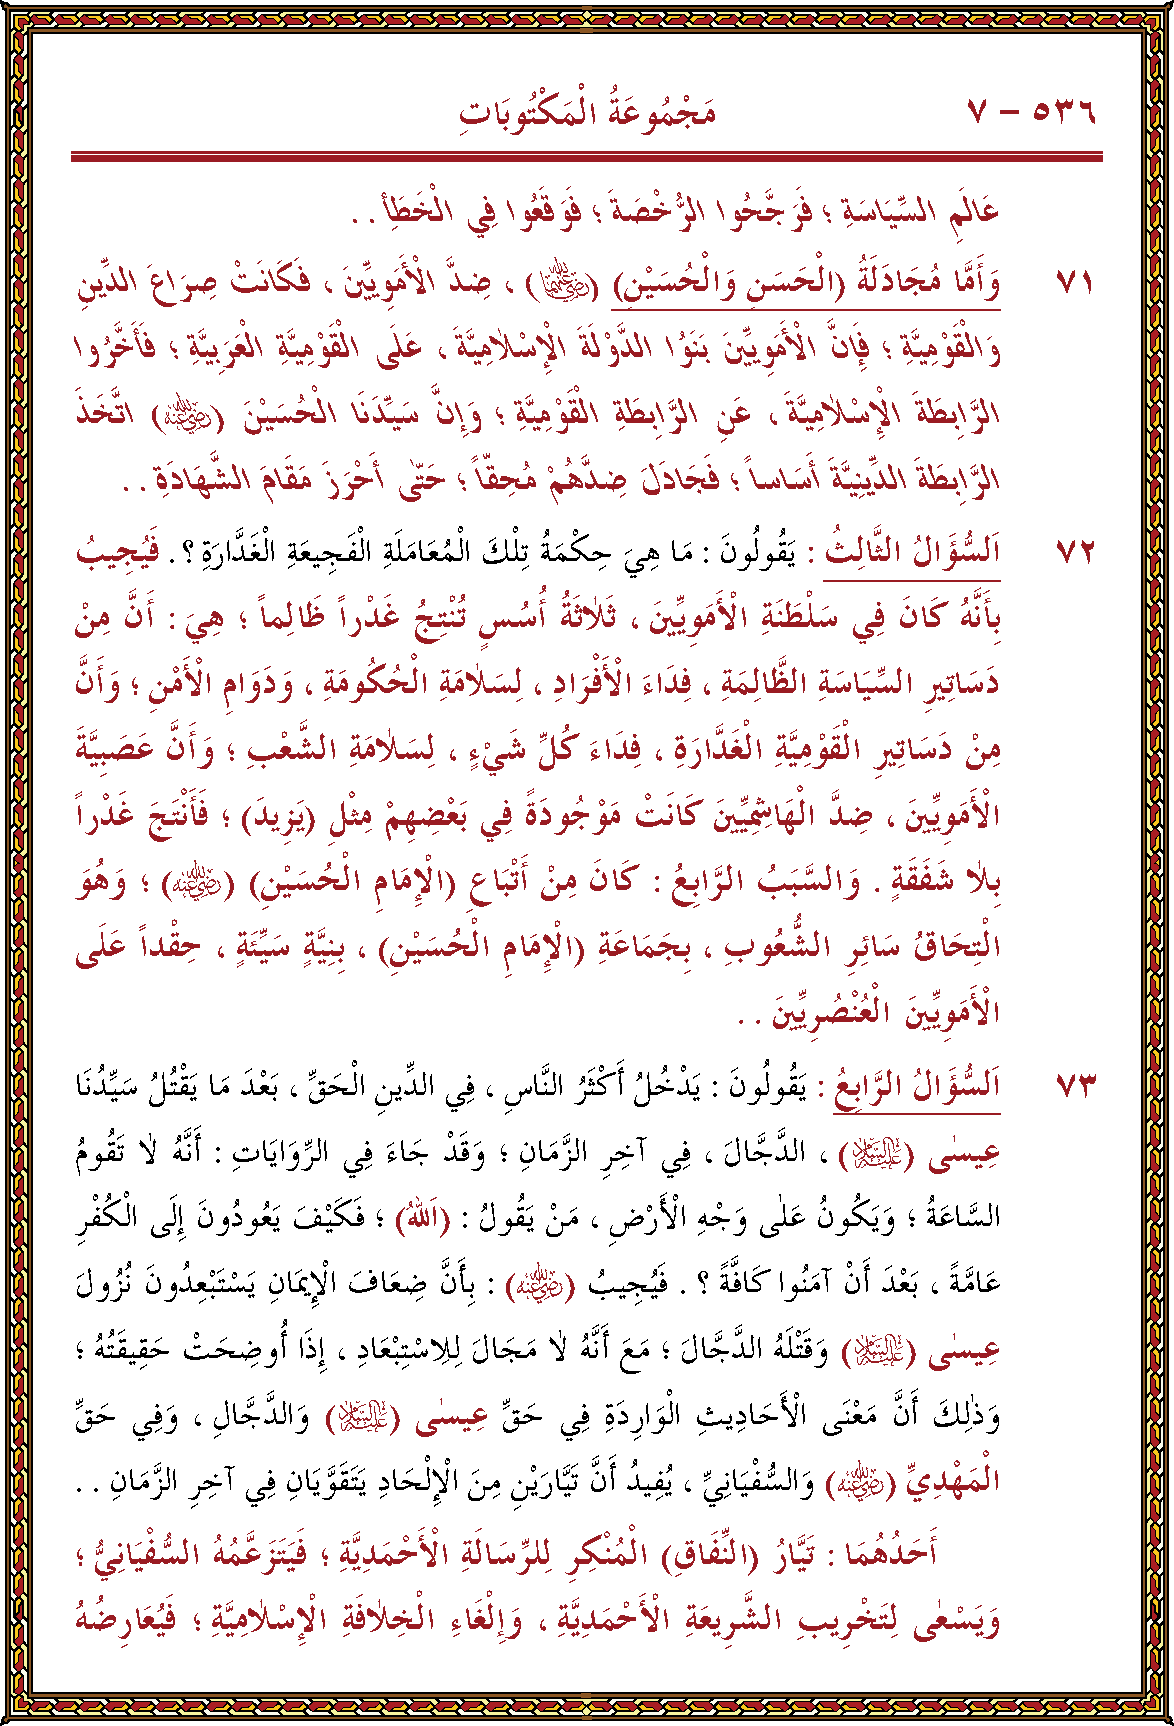 ٥٣٦ – ٧ مَجْمُوعَةُ الْمَكْتُوبَاتِ
عَالَمِ السِّيَاسَةِ ؛ فَرَجَّحُوا الرُّخْصَةَ ؛ فَوَقَعُوا فِي الْخَطَأِ . .
٧١ وَأَمَّا مُجَادَلَةُ (الْحَسَنِ وَالْحُسَيْنِ) (رضي الله عنهما) ، ضِدَّ الْأَمَوِيِّينَ ، فَكَانَتْ صِرَاعَ الدِّينِ
وَالْقَوْمِيَّةِ ؛ فَإِنَّ الْأَمَوِيِّينَ بَنَوُا الدَّوْلَةَ الْإِسْلاَمِيَّةَ ، عَلَى الْقَوْمِيَّةِ الْعَرَبِيَّةِ ؛ فَأَخَّرُوا
الرَّابِطَةَ الْإِسْلاَمِيَّةَ ، عَنِ الرَّابِطَةِ الْقَوْمِيَّةِ ؛ وَإِنَّ سَيِّدَنَا الْحُسَيْنَ (رضي الله عنه) اتَّخَذَ
الرَّابِطَةَ الدِّينِيَّةَ أَسَاساً ؛ فَجَادَلَ ضِدَّهُمْ مُحِقّاً ؛ حَتّٰى أَحْرَزَ مَقَامَ الشَّهَادَةِ . .
٧٢ اَلسُّؤَالُ الثَّالِثُ : يَقُولُونَ : مَا هِيَ حِكْمَةُ تِلْكَ الْمُعَامَلَةِ الْفَجِيعَةِ الْغَدَّارَةِ ؟ . فَيُجِيبُ
بِأَنَّهُ كَانَ فِي سَلْطَنَةِ الْأَمَوِيِّينَ ، ثَلاَثَةُ أُسُسٍ تُنْتِجُ غَدْراً ظَالِماً ؛ هِيَ : أَنَّ مِنْ
دَسَاتِيرِ السِّيَاسَةِ الظَّالِمَةِ ، فِدَاءَ الْأَفْرَادِ ، لِسَلاَمَةِ الْحُكُومَةِ ، وَدَوَامِ الْأَمْنِ ؛ وَأَنَّ
مِنْ دَسَاتِيرِ الْقَوْمِيَّةِ الْغَدَّارَةِ ، فِدَاءَ كُلِّ شَيْءٍ ، لِسَلاَمَةِ الشَّعْبِ ؛ وَأَنَّ عَصَبِيَّةَ
الْأَمَوِيِّينَ ، ضِدَّ الْهَاشِمِيِّينَ كَانَتْ مَوْجُودَةً فِي بَعْضِهِمْ مِثْلِ (يَزِيدَ) ؛ فَأَنْتَجَ غَدْراً
بِلاَ شَفَقَةٍ . وَالسَّبَبُ الرَّابِعُ : كَانَ مِنْ أَتْبَاعِ (الْإِمَامِ الْحُسَيْنِ) (رضي الله عنه) ؛ وَهُوَ
الْتِحَاقُ سَائِرِ الشُّعُوبِ ، بِجَمَاعَةِ (الْإِمَامِ الْحُسَيْنِ) ، بِنِيَّةٍ سَيِّئَةٍ ، حِقْداً عَلَى
الْأَمَوِيِّينَ الْعُنْصُرِيِّينَ . .
٧٣ اَلسُّؤَالُ الرَّابِعُ : يَقُولُونَ : يَدْخُلُ أَكْثَرُ النَّاسِ ، فِي الدِّينِ الْحَقِّ ، بَعْدَ مَا يَقْتُلُ سَيِّدُنَا
عِيسٰى (عليه السلام) ، الدَّجَّالَ ، فِي آخِرِ الزَّمَانِ ؛ وَقَدْ جَاءَ فِي الرِّوَايَاتِ : أَنَّهُ لاَ تَقُومُ
السَّاعَةُ ؛ وَيَكُونُ عَلٰى وَجْهِ الْأَرْضِ ، مَنْ يَقُولُ : (اَللهُ) ؛ فَكَيْفَ يَعُودُونَ إِلَى الْكُفْرِ
عَامَّةً ، بَعْدَ أَنْ آمَنُوا كَافَّةً ؟ . فَيُجِيبُ (رضي الله عنه) : بِأَنَّ ضِعَافَ الْإِيمَانِ يَسْتَبْعِدُونَ نُزُولَ
عِيسٰى (عليه السلام) وَقَتْلَهُ الدَّجَّالَ ؛ مَعَ أَنَّهُ لاَ مَجَالَ لِلِاسْتِبْعَادِ ، إِذَا أُوضِحَتْ حَقِيقَتُهُ ؛
وَذٰلِكَ أَنَّ مَعْنَى الْأَحَادِيثِ الْوَارِدَةِ فِي حَقِّ عِيسٰى (عليه السلام) وَالدَّجَّالِ ، وَفِي حَقِّ
الْمَهْدِيِّ (رضي الله عنه) وَالسُّفْيَانِيِّ ، يُفِيدُ أَنَّ تَيَّارَيْنِ مِنَ الْإِلْحَادِ يَتَقَوَّيَانِ فِي آخِرِ الزَّمَانِ . .
أَحَدُهُمَا : تَيَّارُ (النِّفَاقِ) الْمُنْكِرِ لِلرِّسَالَةِ الْأَحْمَدِيَّةِ ؛ فَيَتَزَعَّمُهُ السُّفْيَانِيُّ ؛
وَيَسْعٰى لِتَخْرِيبِ الشَّرِيعَةِ الْأَحْمَدِيَّةِ ، وَإِلْغَاءِ الْخِلاَفَةِ الْإِسْلاَمِيَّةِ ؛ فَيُعَارِضُهُ